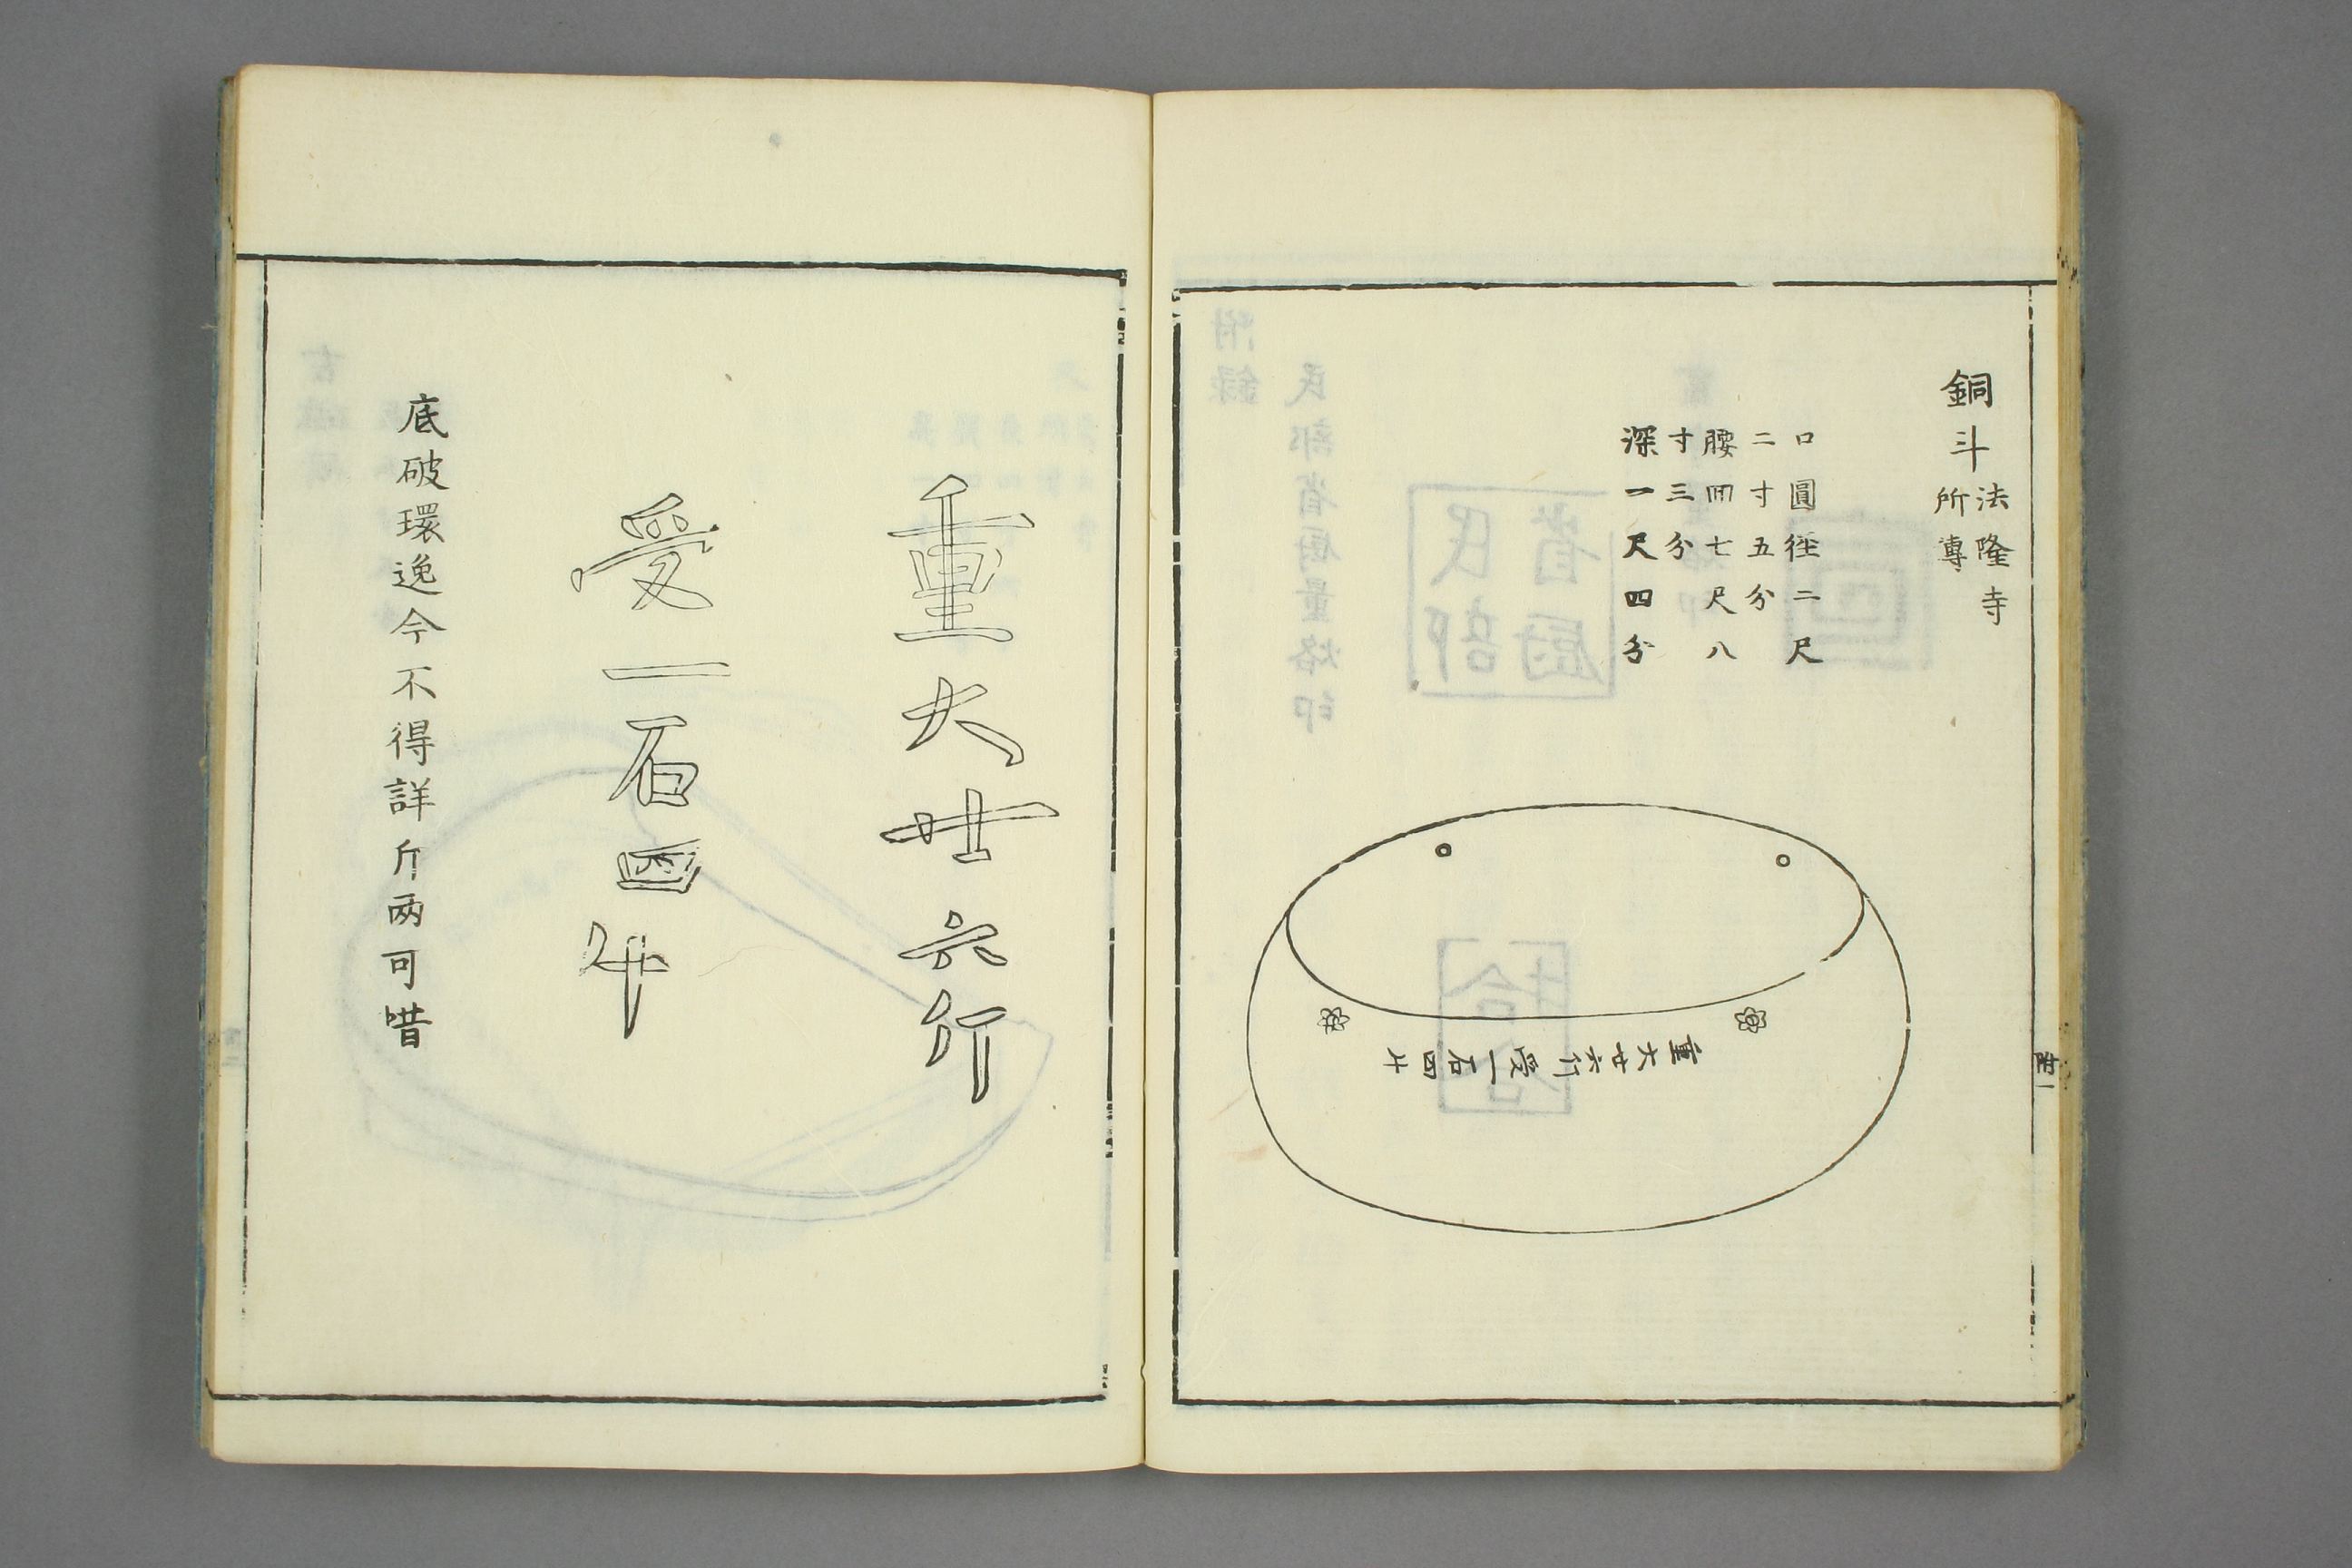 銅斗
法隆寺
所傳
口圓徑二尺
二寸五分
腰囲七尺八
寸三分
深一尺四分
重大廿六斤受一石四斗
重大廿六斤
受一石四斗
底破環逸今不得詳斤兩可惜